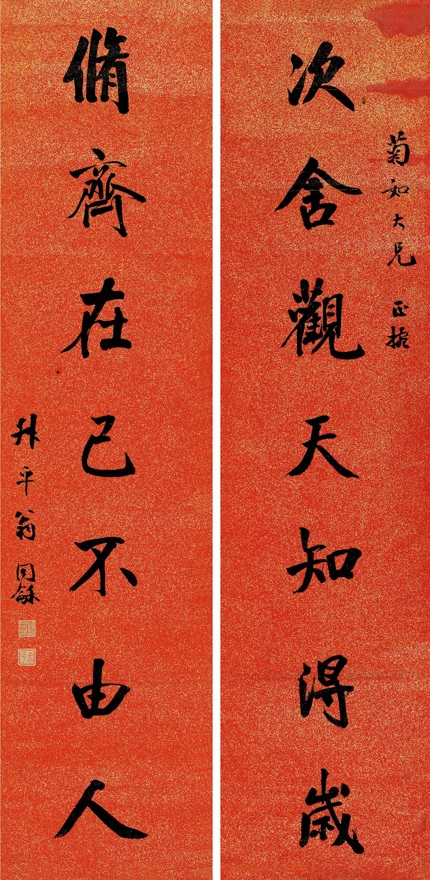 菊如大兄 正搲
次舍觀天知得歲
脩齊在己不由人
叔平翁同龢